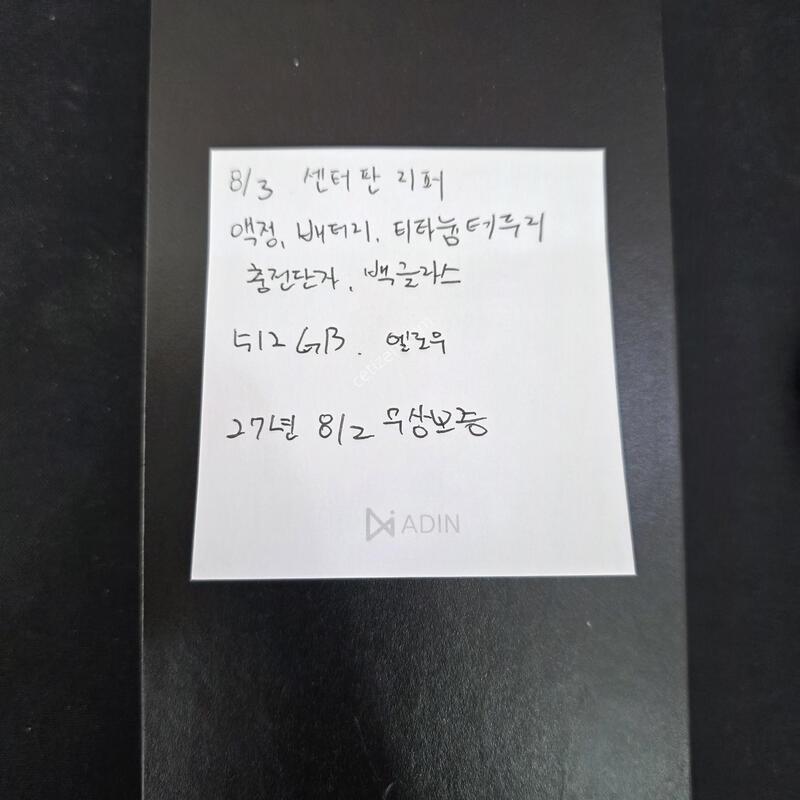 8/3 센터판 리퍼
액정, 배터리, 티타늄테두리
충전단자, 백글라스
512GB. 옐로우
27년 8/2 무상보증
ADIN